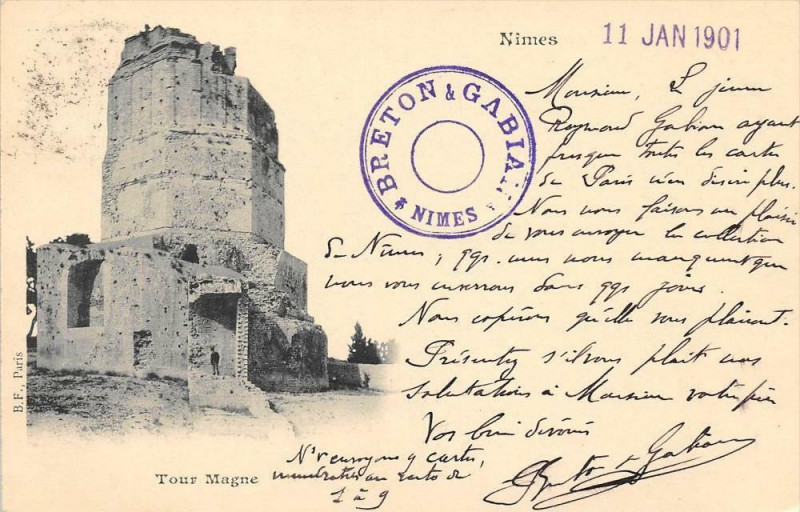 Nîmes
11 JAN 1901
BRETON & GABIAN
NIMES
Monsieur, Le jeune
Raymond Gabian ayant
presque toutes les cartes
de Paris n'en désire plus.
Nous nous faisons un plaisir
de vous envoyer la collection
de Nîmes, qqs. unes nous manquent que
nous vous enverrons dans qqs jours.
Nous espérons qu'elle vous plairont.
Présentez s'il vous plaît nos
salutations à Monsieur votre père
Vos bien dévoués
Breton & Gabian
Ns envoyons 9 cartes,
numérotées au recto de
1 à 9
Tour Magne
B.F., Paris